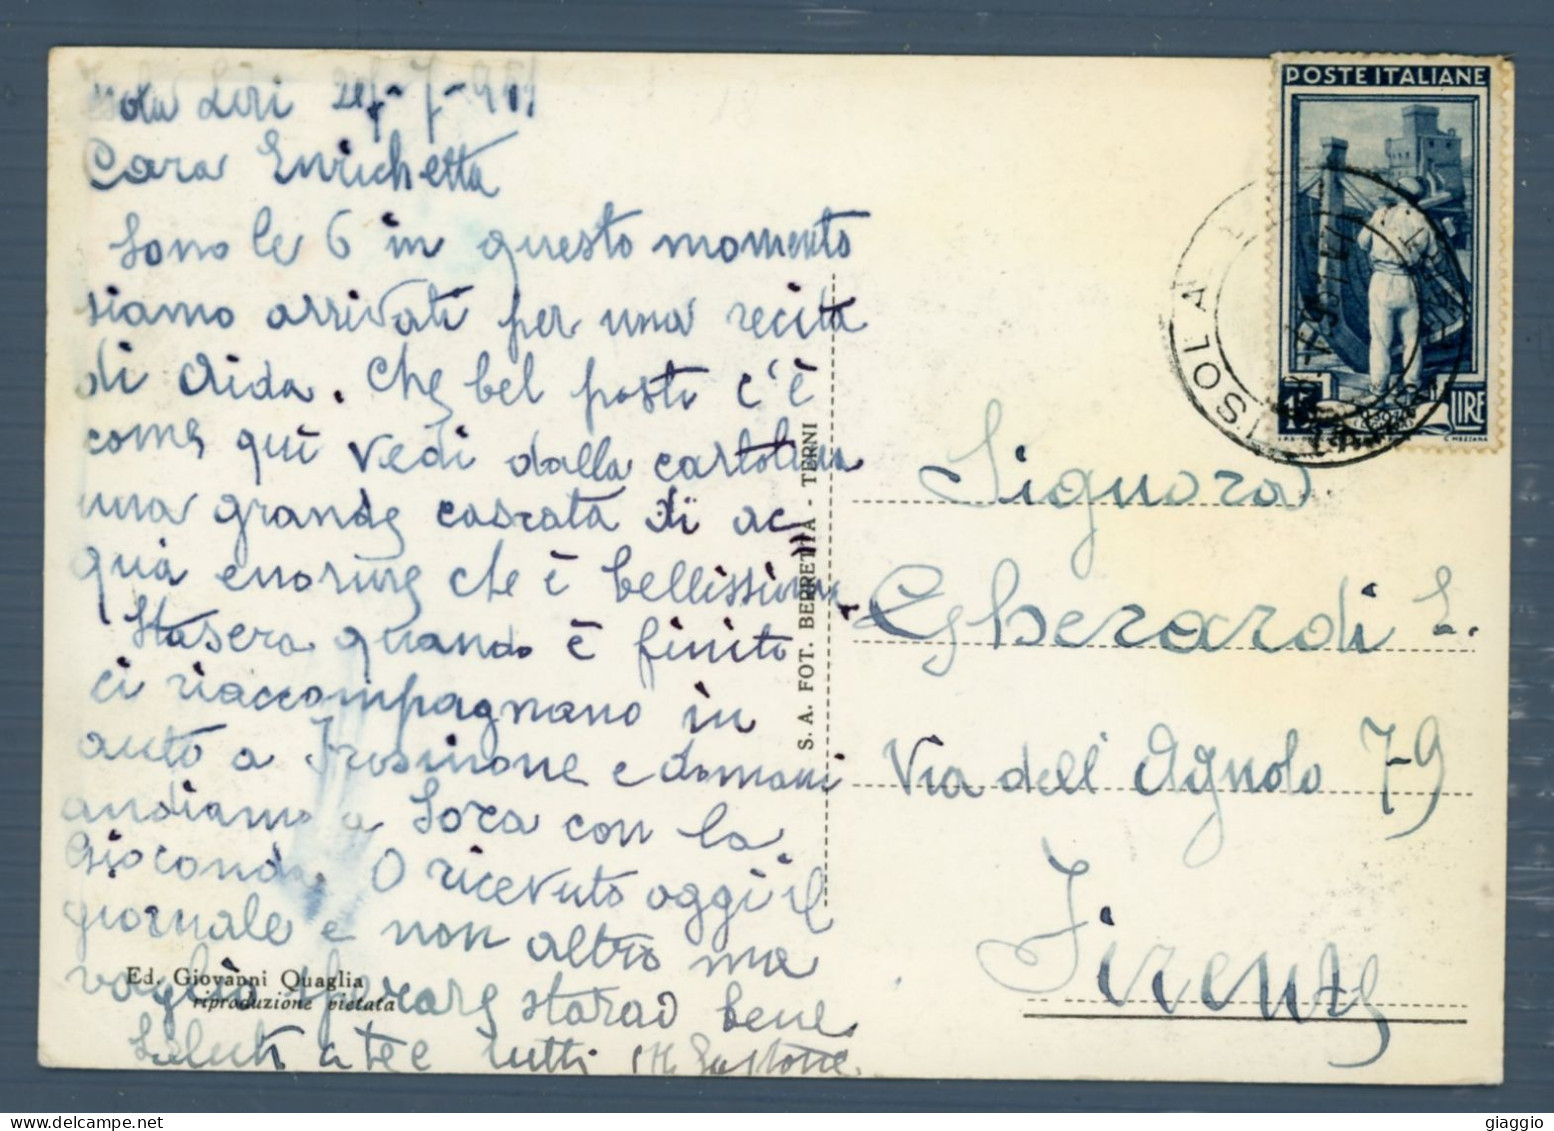 Isola Liri 24-7-951
Cara Enrichetta
Sono le 6 in questo momento
siamo arrivati per una recita
di Aida. Che bel posto c'è
come qui vedi dalla cartolina
una grande cascata di ac
qua enorme che è bellissima
Stasera quando è finito
ci riaccompagnano in
auto a Frosinone e domani
andiamo a Sora con la
Gioconda. O ricevuto oggi il
giornale e non altro ma
voglio sperare starao bene
Saluti a te e tutti
Ed. Giovanni Quaglia
riproduzione vietata
S. A. FOT. BERRETTA - TERNI
POSTE ITALIANE
LIRE
ISOLA
Signora
Gherardi E.
Via dell'Agnolo 79
Firenze
giaggio